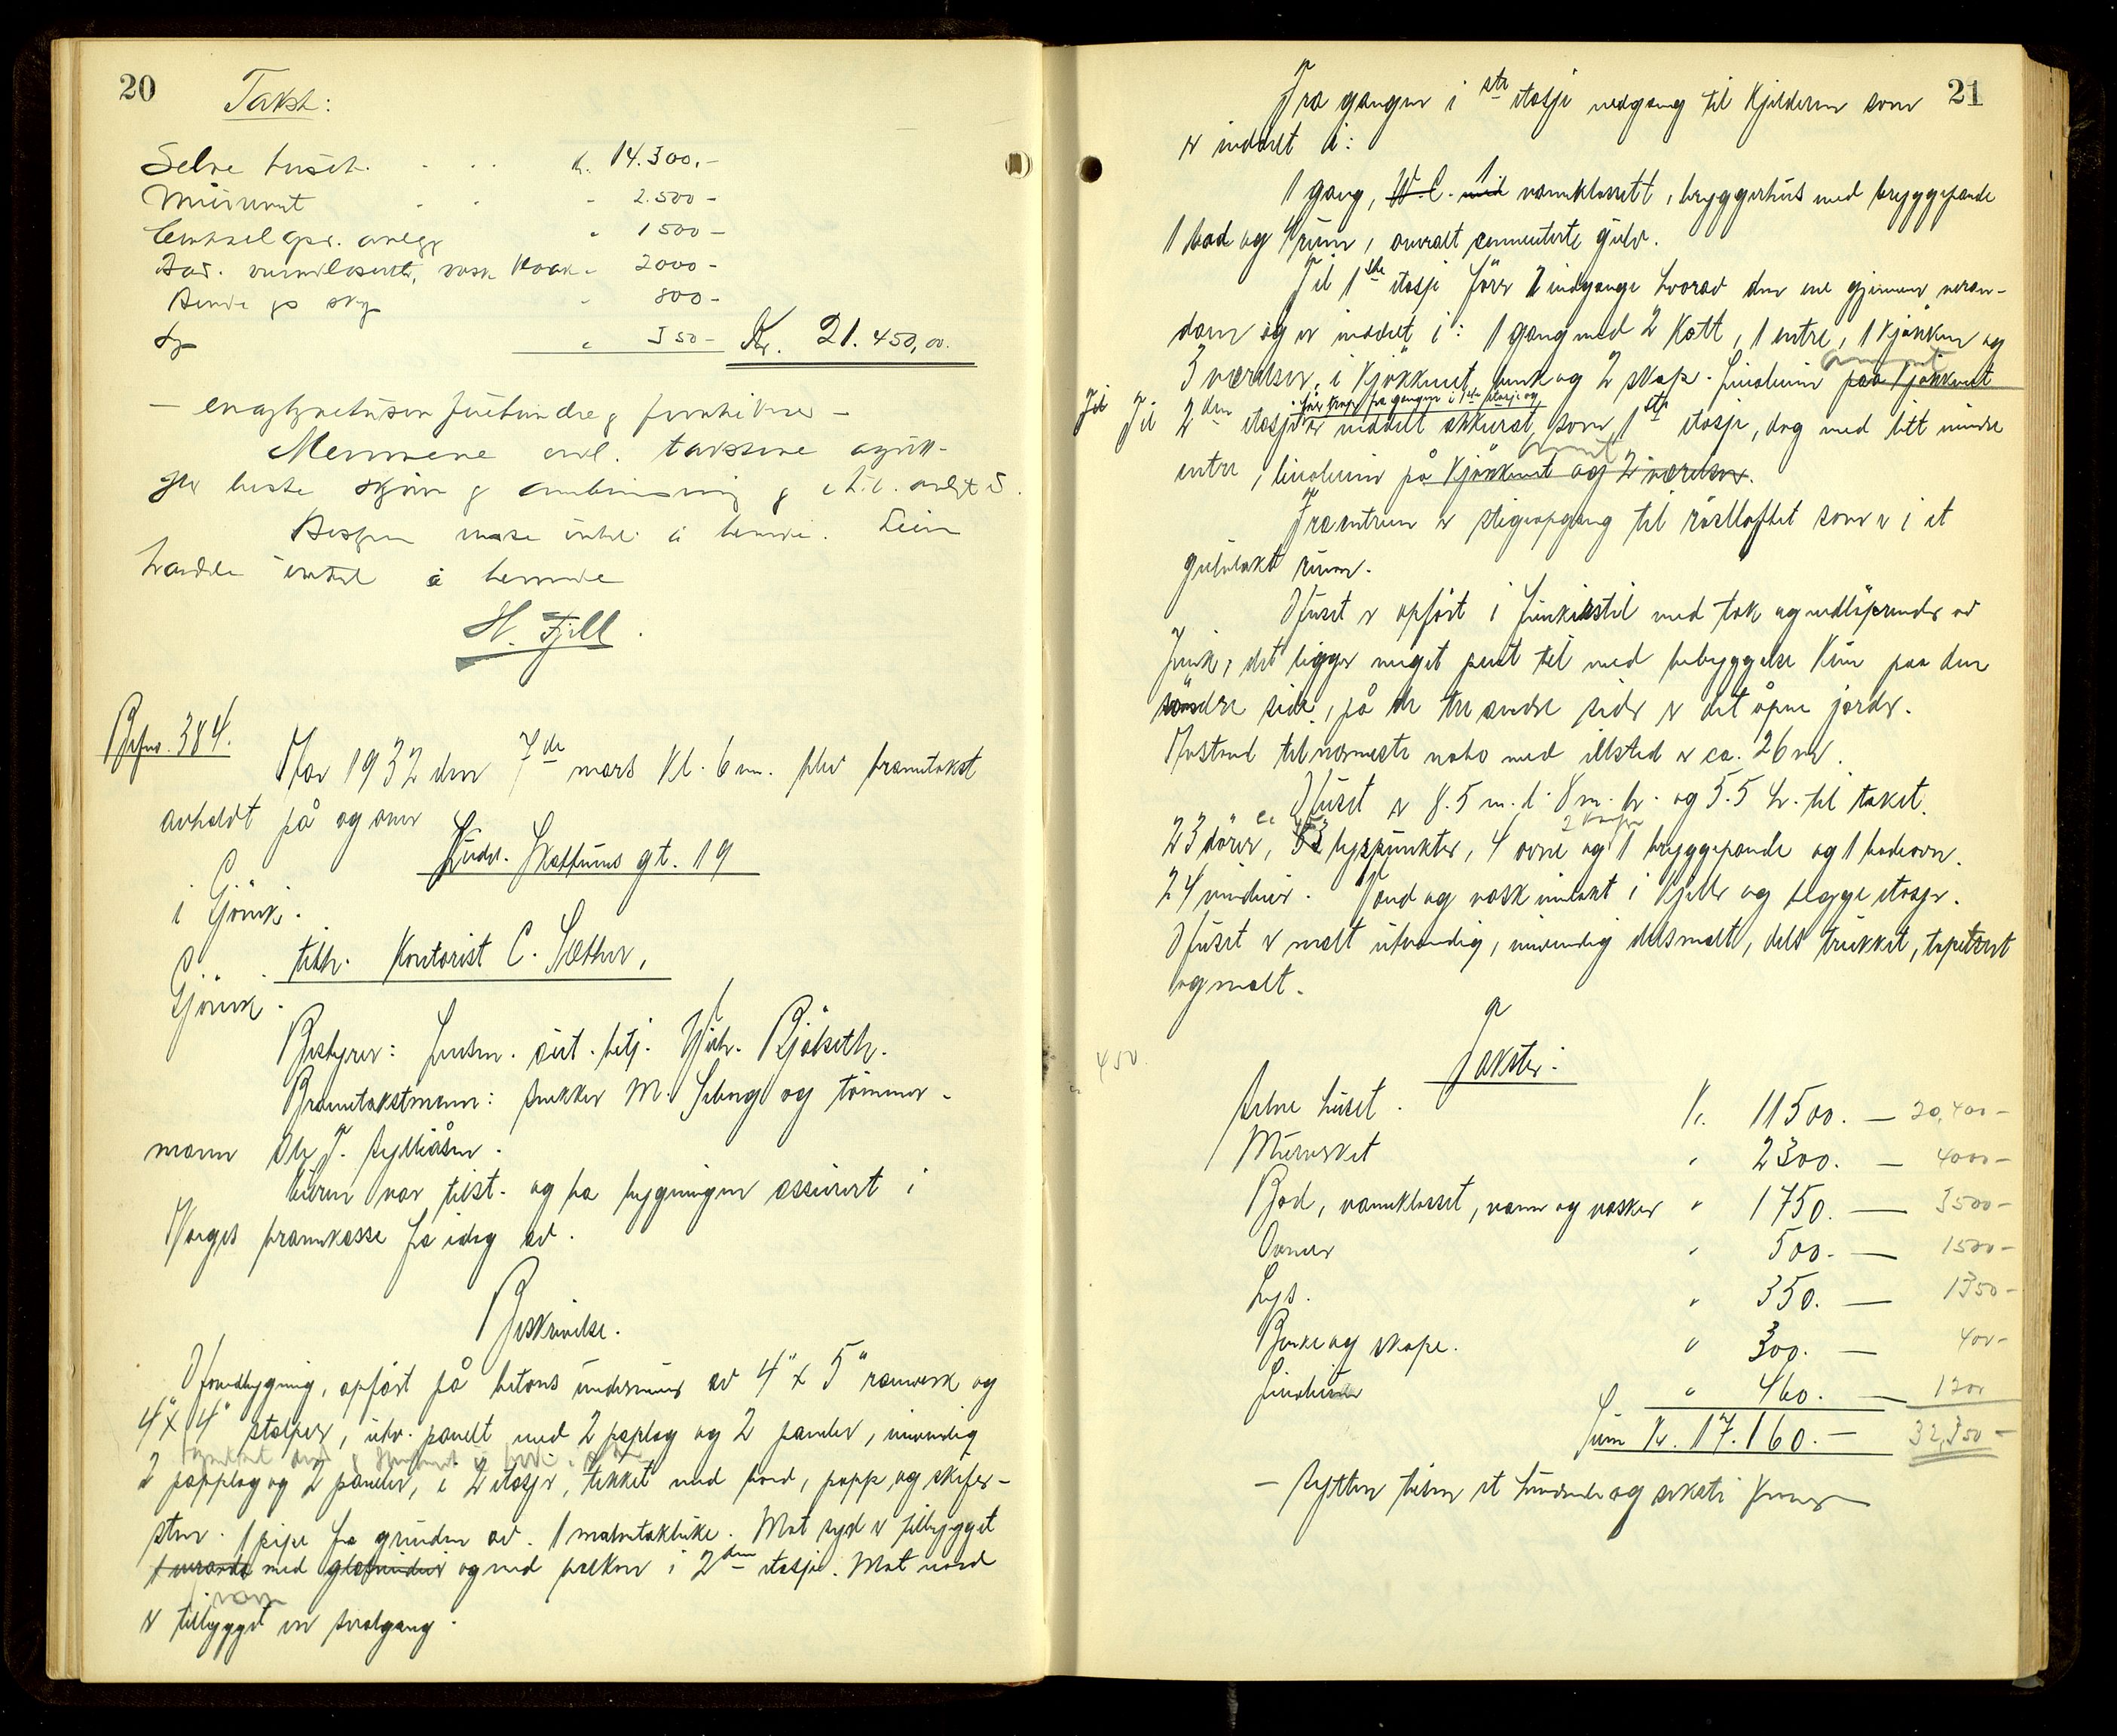 20
Takst:
Selve huset . . . kr. 14.300.-
Mürverket . . - 2.500-
Centralopv. anlegg " 1500-
Bad. vannklosett, vask - 2000-
Benke og skap - 800-
Lys " 350- Kr. 21.450,00.
- enogtyvetusen firehundre og femti kroner -
Mennene avl. takstene
beste skjønn og
Bestyr. intet å bemerke. Eieren
hadde intet å bemerke
H. Fjell.
Brfno. 384.
Aar 1932 den 7de mars kl. 6 em. blev branntakst
avholdt på og over
Ludv. Skattums gt. 19
i Gjövik.
tilh. Kontorist C. Sæther,
Gjövik.
Bestyrer: Lensm. aut. betj. Hjalseth.
Branntakstmenn: snekker M. Seberg og tömmer-
mann
Eieren var tilst. og fra bygningen assurert i
Norges brannkasse fra idag av.
Beskrivelse.
Hovedbygning, opfört på betons undermur av 4" x 5" reisverk og
4" x 4" stolper, utv. panelt med 2 paplag og 2 paneler, innvendig
2 papplag og 2 paneler, i 2 etasjer, tekket med bord, papp, og skifer-
sten. 1 pipe fra grunden av. 1 matvetaksluke. Mot syd er tilbygget
1 veranda med glassvinduer og med balkon i 2den etasje. Mot nord
er tilbygget en svalgang.
21
Fra gangen i 1ste etasje nedgang til kjelderen som
er inndelt i:
1 gang, W.C. med 1 vannklosett, bryggerhus med bryggepande
1 bad og 1 rum, overalt sementerte gulv.
Til 1ste etasje förer 2 indgange hvorav den ene gjennem veran-
daen og er inndelt i: 1 gang med 2 kott, 1 entre, 1 kjökken og
3 værelser, i kjökkenet benk og 2 skap. Linoleum paa kjökkenet
Til Til 2den etasje förer trapp fra gangen i 1ste etasje og
er inddelt akkurat som 1ste etasje, dog med litt mindre
entre, linoleum på kjökkenet og 2 værelser.
Fra entreen er stigeopgang til röstloftet som er i et
gulvlakt rum.
Huset er opfört i funkisstil med tak og nedlöpsrender av
sink, det ligger meget pent til med bebyggelse kun paa den
söndre side, på de tre andre sider er det åpne jorder.
Avstand til nærmeste nabo med ilsted er ca. 26 m.
Huset er 8.5 m. l. 8 m. br. og 5.5 h. til taket.
23 dörer, lyspunkter, 4 ovne og 1 bryggepande og 1 badeovn.
24 vinduer. Vand og vask innlakt i kjeller og begge etasjer.
Huset er malt utvendig, innvendig dels malt, dels trukket, tapetsert
og malt.
450
Takster:
Selve huset . Kr. 11500. — 20,400-
Murverket " 2300. — 4000-
Bad, vannklosset, vann og vasker " 1750. — 3500-
Ovner " 500. — 1500-
Lys. " 350. — 1350-
Benke og skape. " 300. — 400-
Linoleum " 460. — 1200
Sum Kr. 17.160.- 32,350-
- sytten tusen et hundrede og seksti kroner -